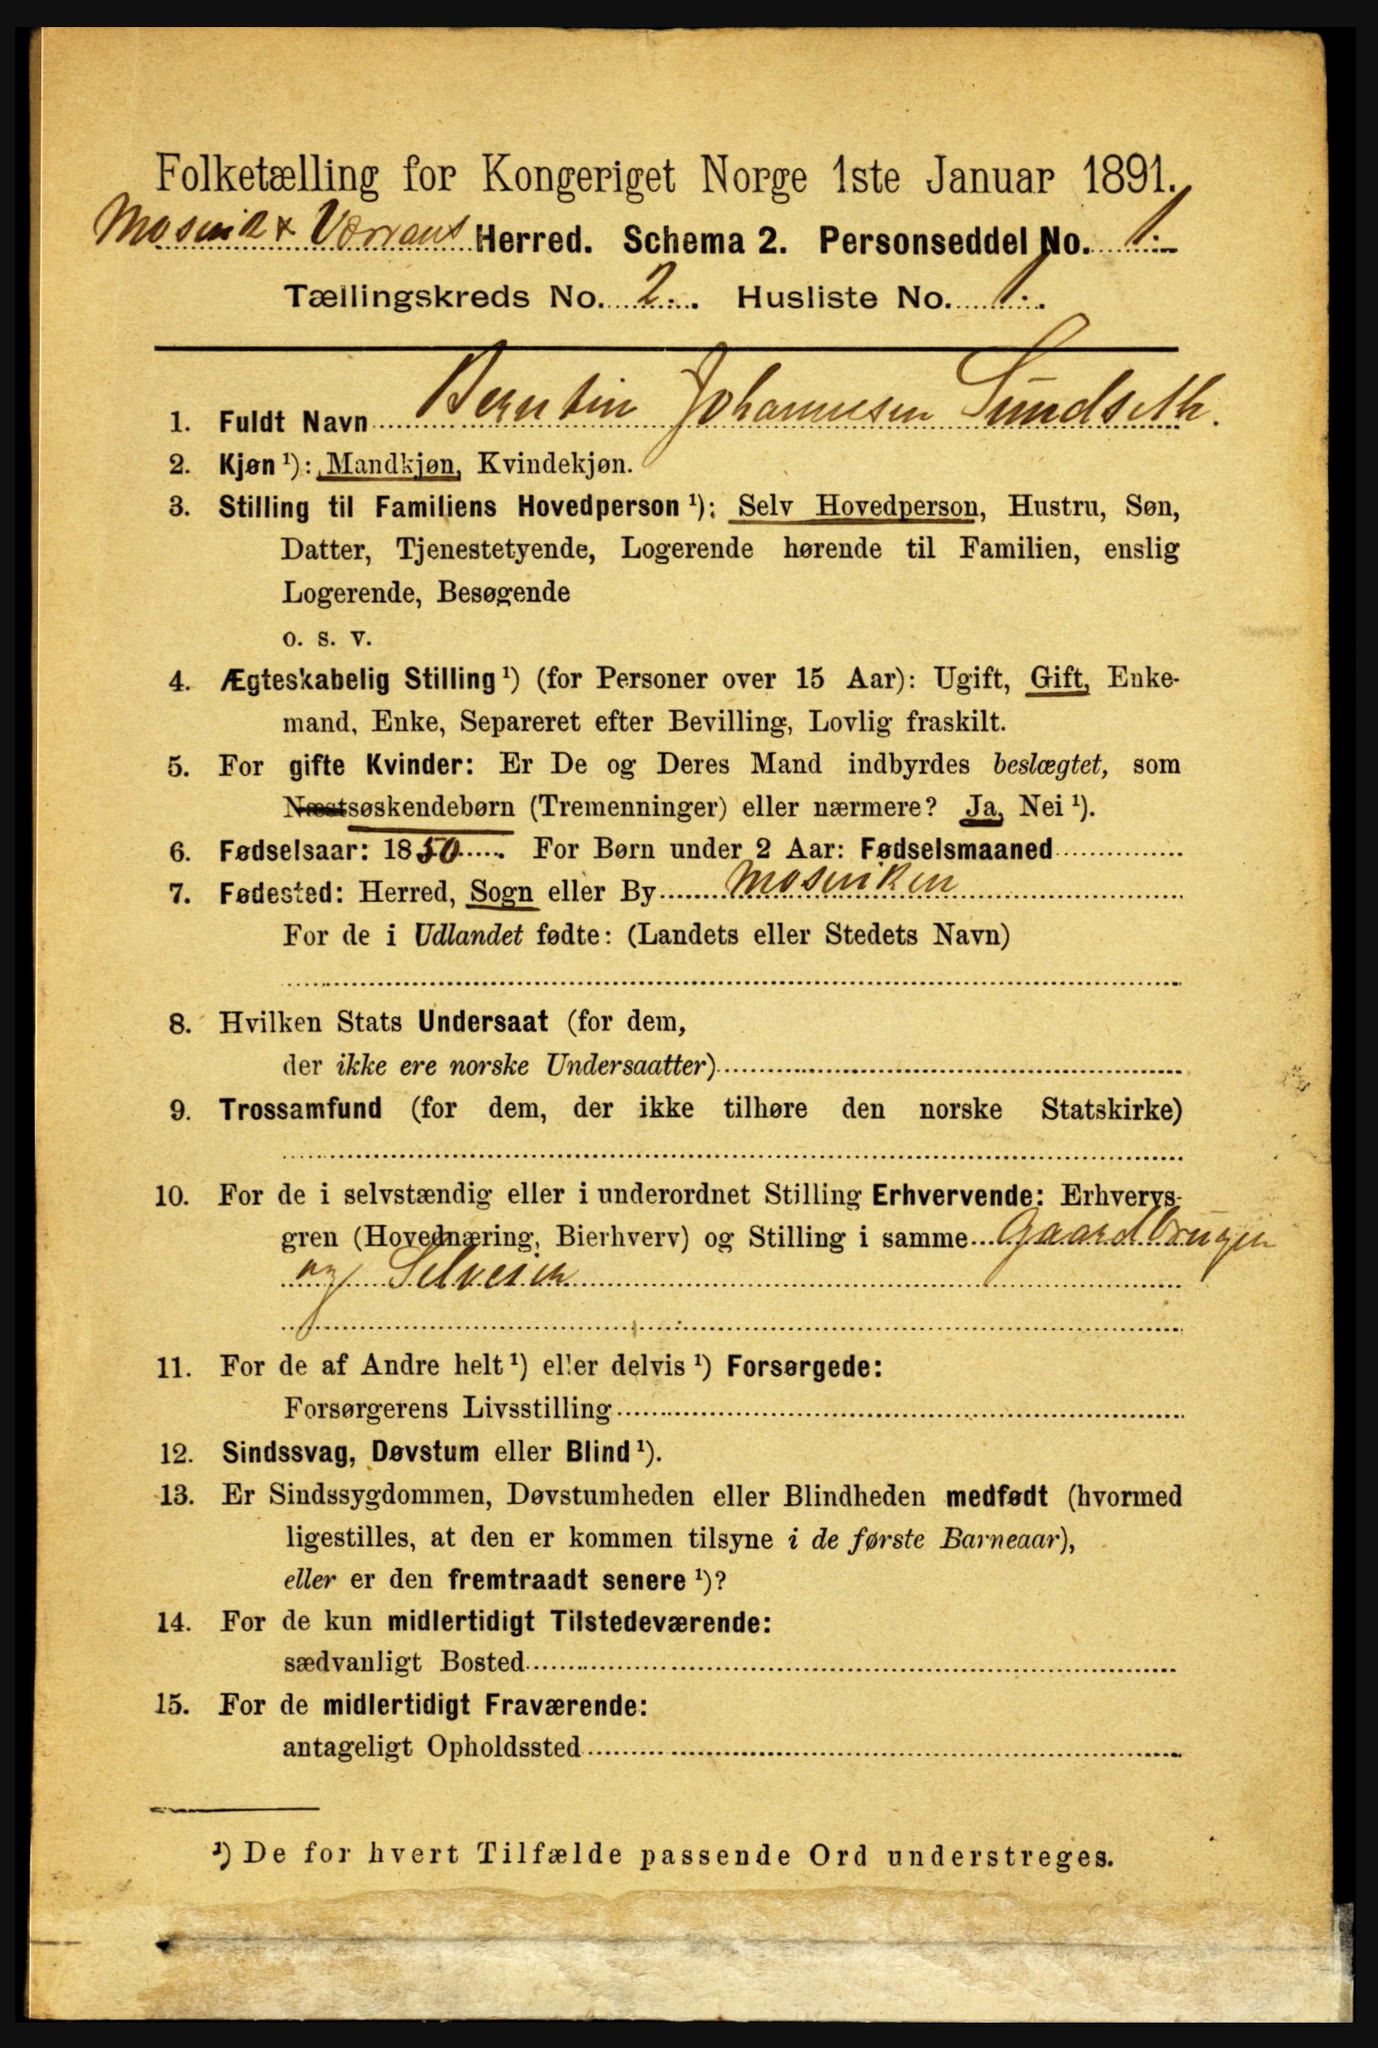 Folketælling for Kongeriget Norge 1ste Januar 1891.
Mosvik & Værrans Herred. Schema 2. Personseddel No. 1.
Tællingskreds No. 2. Husliste No. 1.
1. Fuldt Navn Berntin Johannesen Sundseth.
2. Kjøn ¹): Mandkjøn, Kvindekjøn.
3. Stilling til Familiens Hovedperson ¹): Selv Hovedperson, Hustru, Søn,
Datter, Tjenestetyende, Logerende hørende til Familien, enslig
Logerende, Besøgende
o. s. v.
4. Ægteskabelig Stilling ¹) (for Personer over 15 Aar): Ugift, Gift, Enke-
mand, Enke, Separeret efter Bevilling, Lovlig fraskilt.
5. For gifte Kvinder: Er De og Deres Mand indbyrdes beslægtet, som
Næstsøskendebørn (Tremenninger) eller nærmere? Ja, Nei ¹).
6. Fødselsaar: 1850. For Børn under 2 Aar: Fødselsmaaned
7. Fødested: Herred, Sogn eller By Mosviken
For de i Udlandet fødte: (Landets eller Stedets Navn)
8. Hvilken Stats Undersaat (for dem,
der ikke ere norske Undersaatter)
9. Trossamfund (for dem, der ikke tilhøre den norske Statskirke)
10. For de i selvstændig eller i underordnet Stilling Erhvervende: Erhvervs-
gren (Hovednæring, Bierhverv) og Stilling i samme Gaardbruger
og Selveier
11. For de af Andre helt ¹) eller delvis ¹) Forsørgede:
Forsørgerens Livsstilling
12. Sindssvag, Døvstum eller Blind ¹).
13. Er Sindssygdommen, Døvstumheden eller Blindheden medfødt (hvormed
ligestilles, at den er kommen tilsyne i de første Barneaar),
eller er den fremtraadt senere ¹)?
14. For de kun midlertidigt Tilstedeværende:
sædvanligt Bosted
15. For de midlertidigt Fraværende:
antageligt Opholdssted
¹) De for hvert Tilfælde passende Ord understreges.